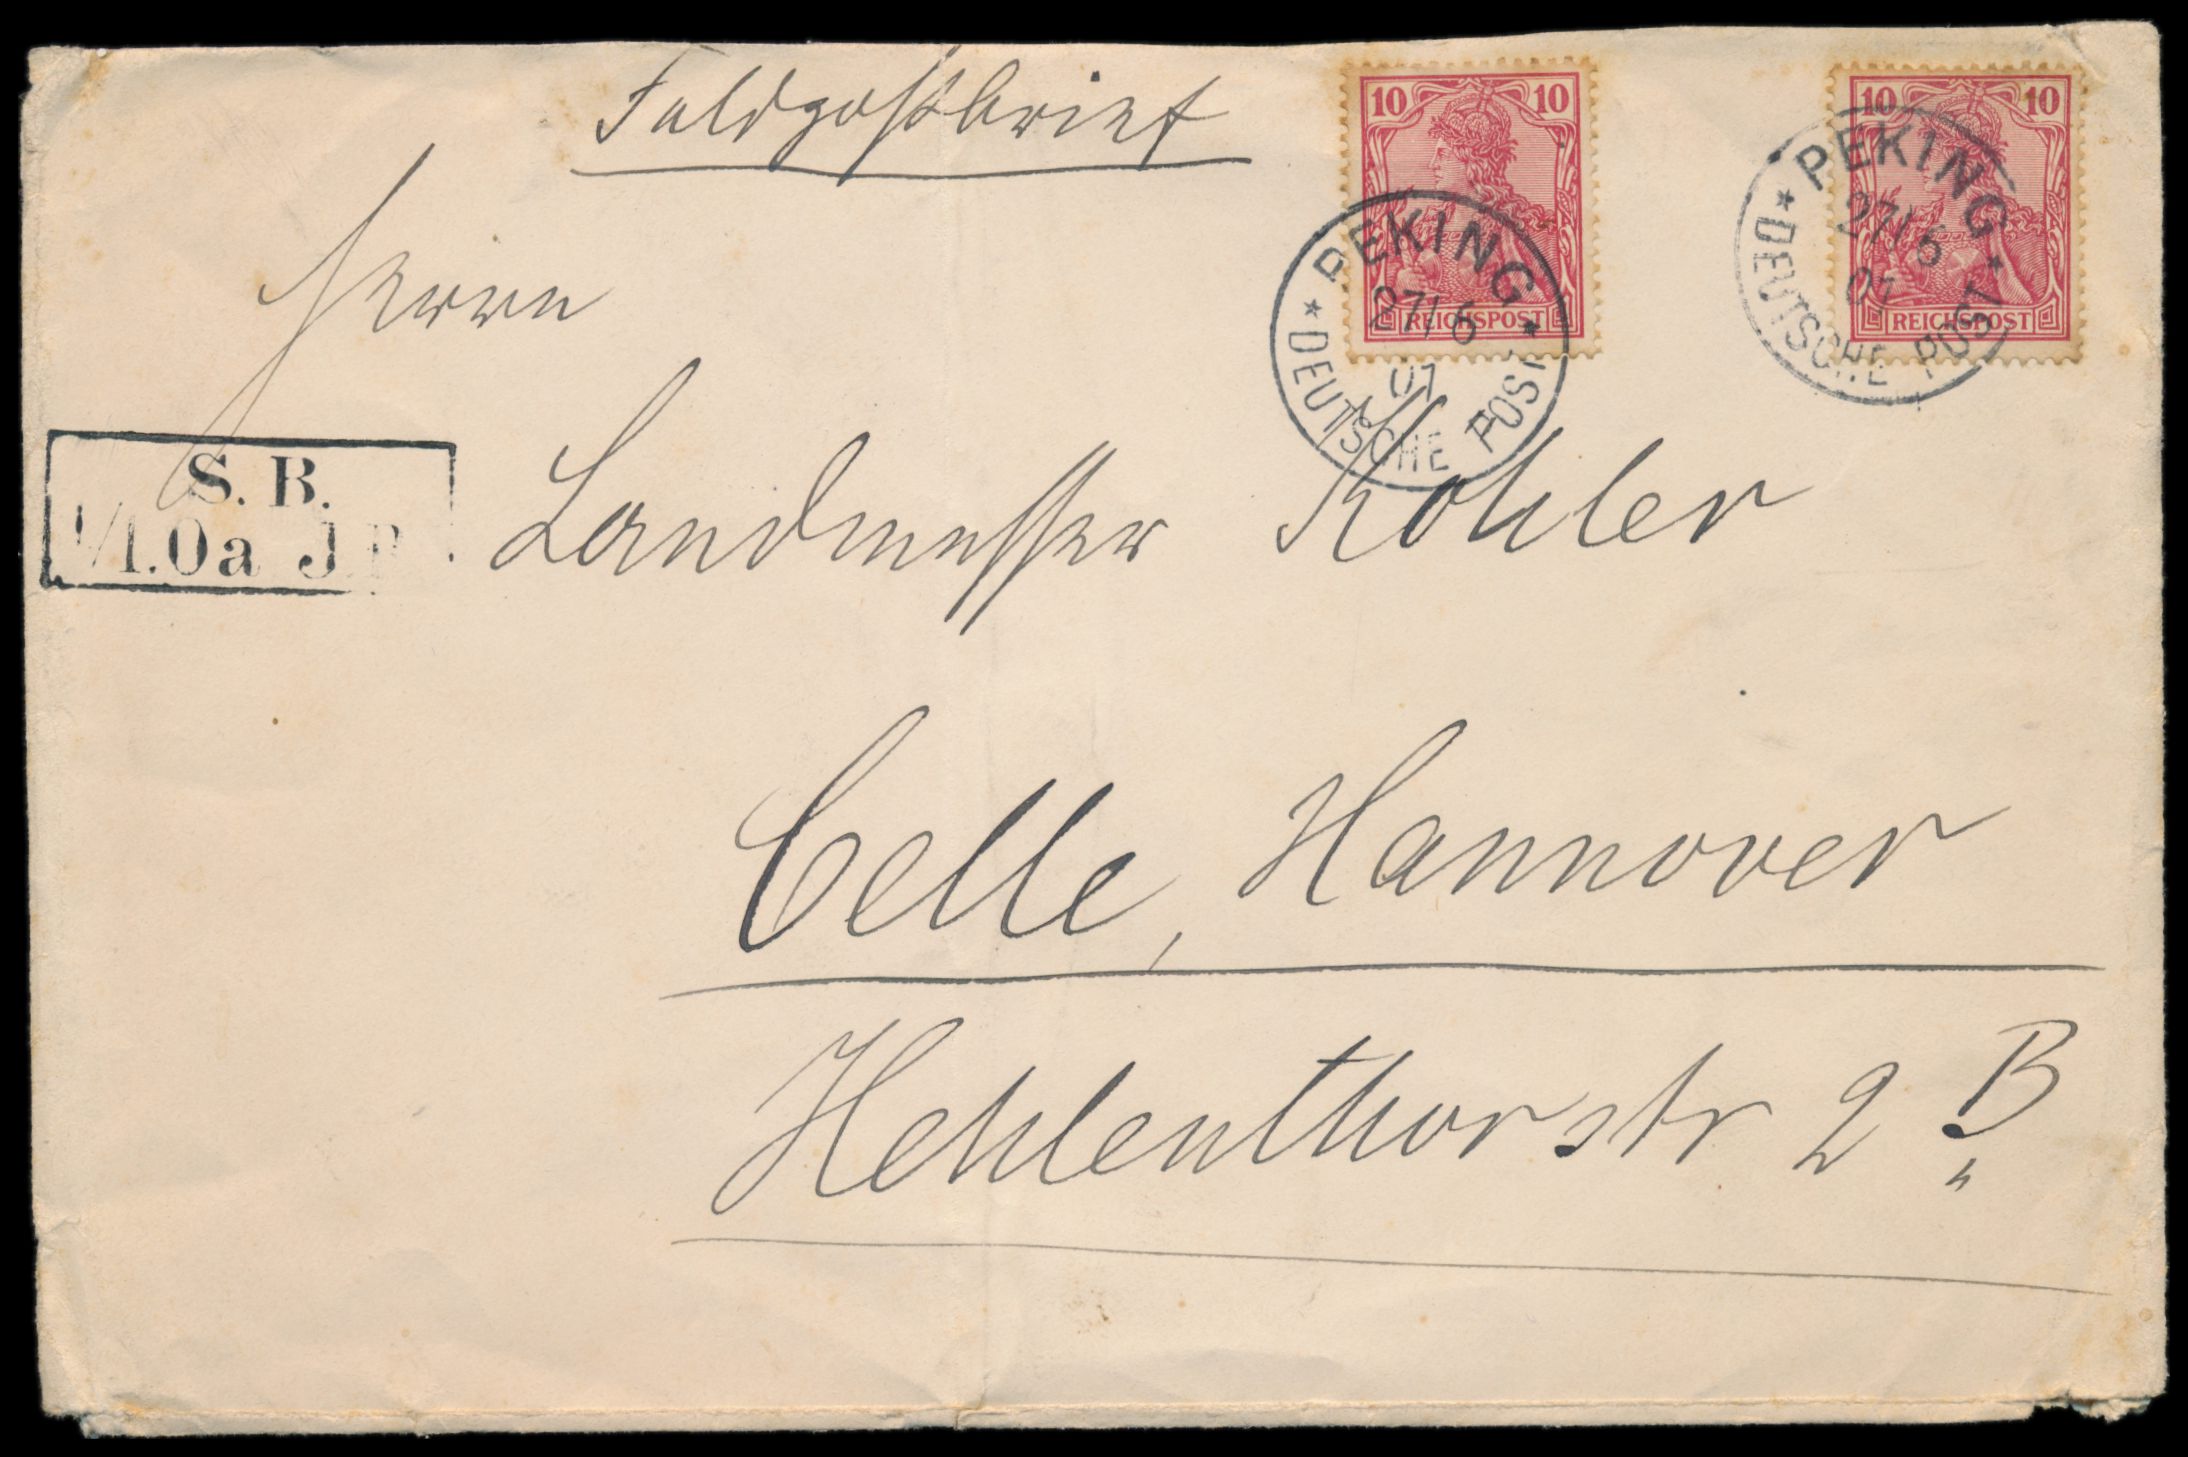 Feldpostbrief
10 10
REICHSPOST
PEKING
27/6
01
* DEUTSCHE POST *
10 10
REICHSPOST
PEKING
27/6
01
* DEUTSCHE POST *
Herrn
S. B.
1/1.Oa J.R.
Landmesser Kohler
Celle, Hannover
Hehlenthorstr 2 B